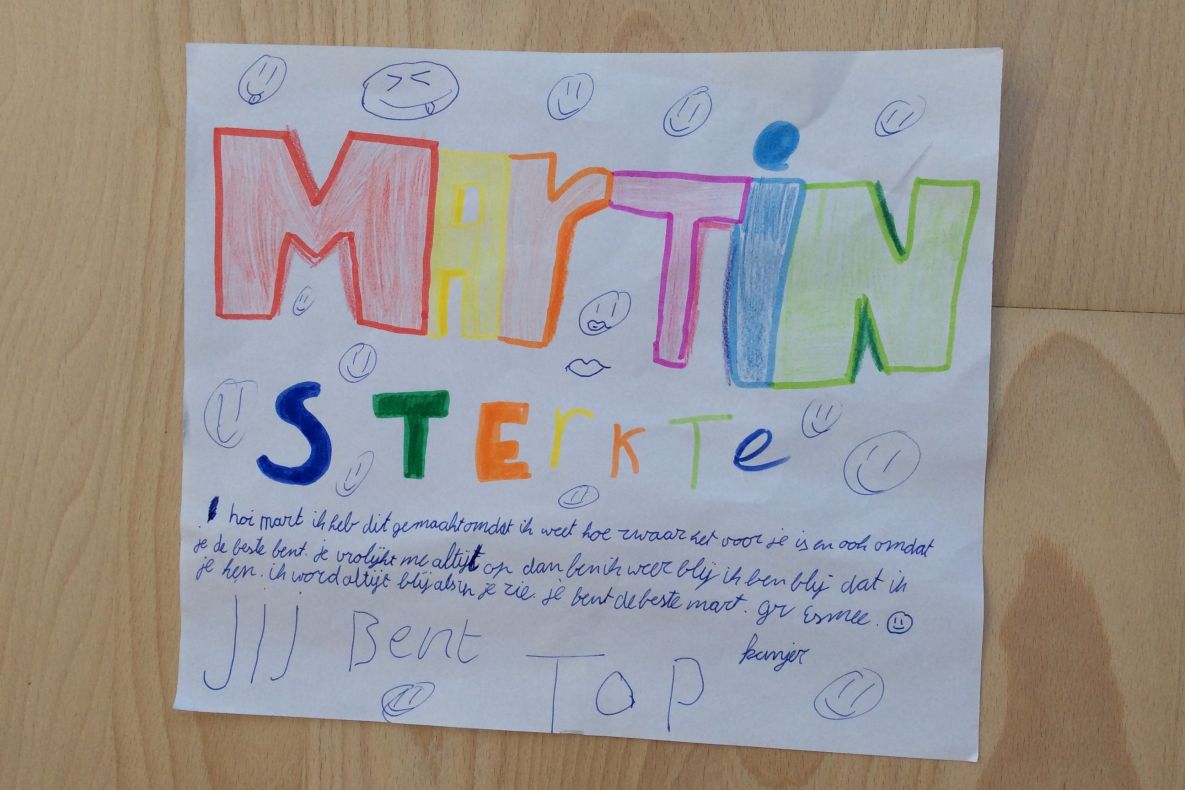 MArTiN
STErKTe
hoi mart ik heb dit gemaakt omdat ik weet hoe zwaar het voor je is en ook omdat
je de beste bent. je vrolijkt me altijt op dan ben ik weer blij ik ben blij dat ik
je ken. ik word altijt blij als ik je zie. je bent de beste mart. gr Esmee.
kanjer
JIJ Bent
TOP